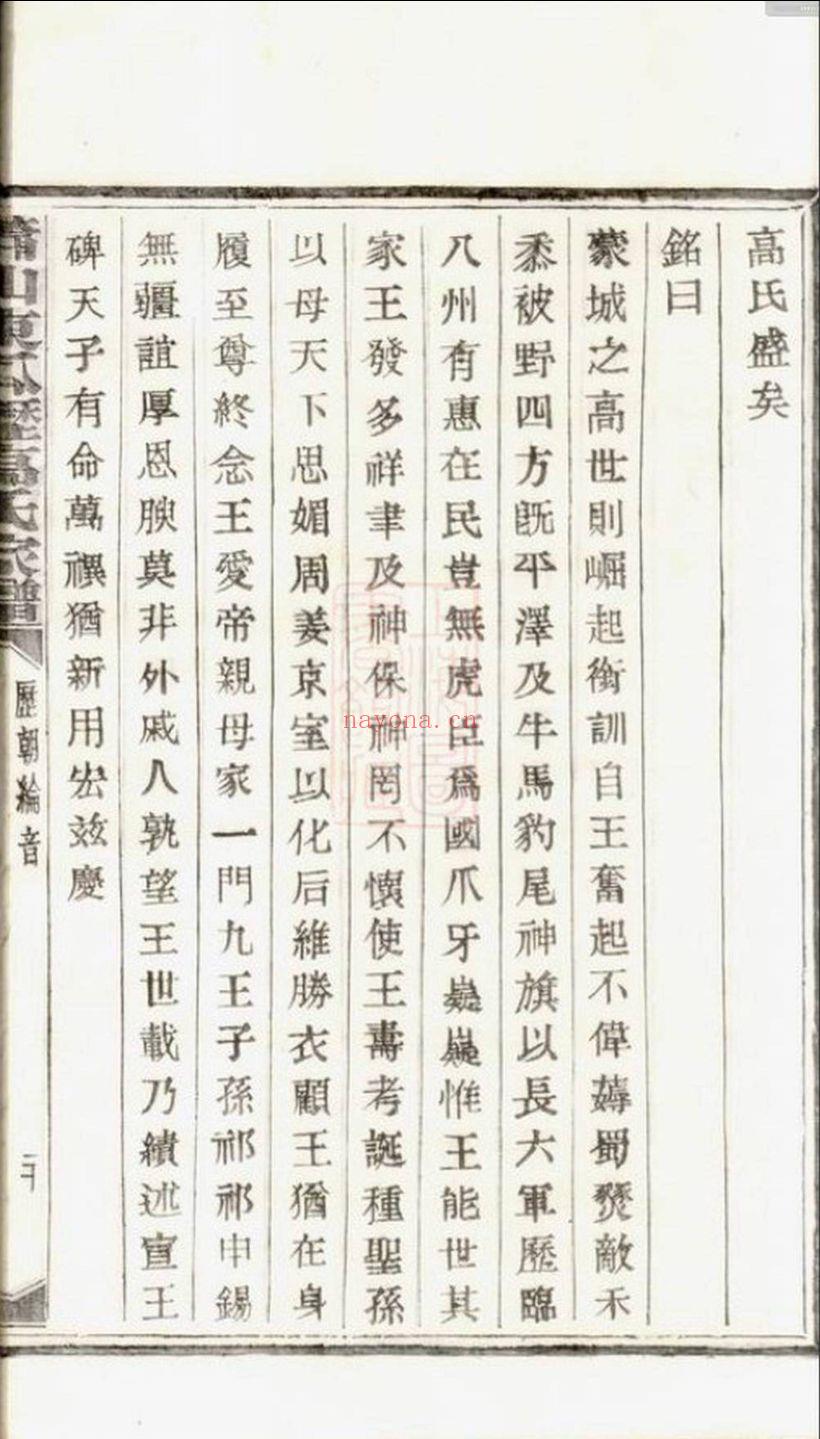 高氏盛矣
銘曰
蒙城之高世則崛起銜訓自王奮起不偉薅蜀燹敵禾
黍被野四方既平澤及牛馬豹尾神旗以長六軍歷臨
八州有惠在民豈無虎臣爲國爪牙嶷嶷惟王能世其
家王發多祥聿及神保神罔不懷使王壽考誕種聖孫
以母天下思媚周姜京室以化后維勝衣顧王猶在身
履至尊終念王愛帝親母家一門九王子孫祁祁申錫
無疆誼厚恩腴莫非外戚人孰望王世載乃績述宣王
碑天子有命萬禩猶新用宏玆慶
蕭山東瓜瀝高氏家譜
歷朝綸音
二十
nayona.cn